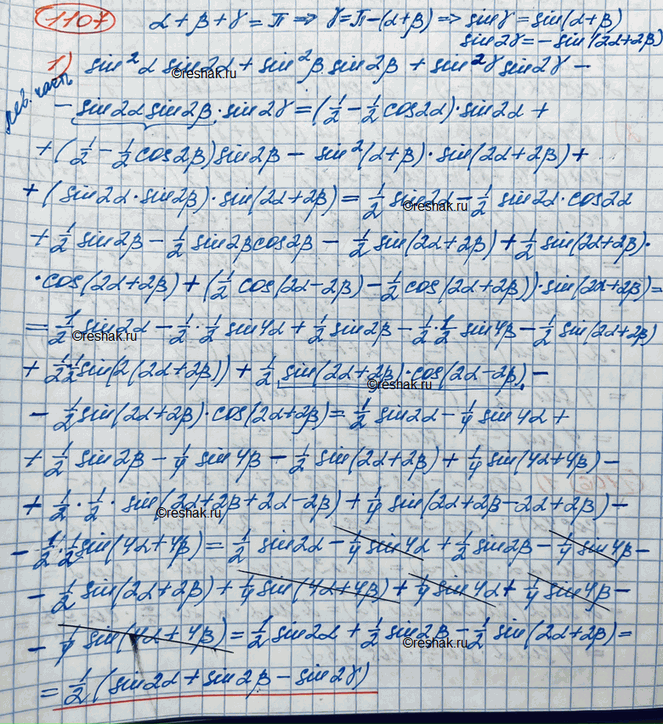 1107 α+β+γ=π ⇒ γ=π-(α+β) ⇒ sinγ=sin(α+β)
sin2γ=-sin(2α+2β)
1) sin²α sin2α + sin²β sin2β + sin²γ sin2γ -
лев. часть
- sin2α sin2β · sin2γ = (1/2 - 1/2 cos2α) · sin2α +
+ (1/2 - 1/2 cos2β) sin2β - sin²(α+β) · sin(2α+2β) +
+ (sin2α · sin2β) · sin(2α+2β) = 1/2 sin2α - 1/2 sin2α · cos2α
+ 1/2 sin2β - 1/2 sin2β cos2β - 1/2 sin(2α+2β) + 1/2 sin(2α+2β) ·
· cos(2α+2β) + (1/2 cos(2α-2β) - 1/2 cos(2α+2β)) · sin(2α+2β) =
= 1/2 sin2α - 1/2 · 1/2 sin4α + 1/2 sin2β - 1/2 · 1/2 sin4β - 1/2 sin(2α+2β)
+ 1/2 1/2 sin(2(2α+2β)) + 1/2 sin(2α+2β) · cos(2α-2β) -
- 1/2 sin(2α+2β) · cos(2α+2β) = 1/2 sin2α - 1/4 sin4α +
+ 1/2 sin2β - 1/4 sin4β - 1/2 sin(2α+2β) + 1/4 sin(4α+4β) -
+ 1/2 · 1/2 · sin(2α+2β+2α-2β) + 1/4 sin(2α+2β-2α+2β) -
- 1/2 · 1/2 sin(4α+4β) = 1/2 sin2α - 1/4 sin4α + 1/2 sin2β - 1/4 sin4β -
- 1/2 sin(2α+2β) + 1/4 sin(4α+4β) + 1/4 sin4α + 1/4 sin4β -
- 1/4 sin(4α+4β) = 1/2 sin2α + 1/2 sin2β - 1/2 sin(2α+2β) =
= 1/2 (sin2α + sin2β - sin2γ)
©reshak.ru
©reshak.ru
©reshak.ru
©reshak.ru
©reshak.ru
©reshak.ru